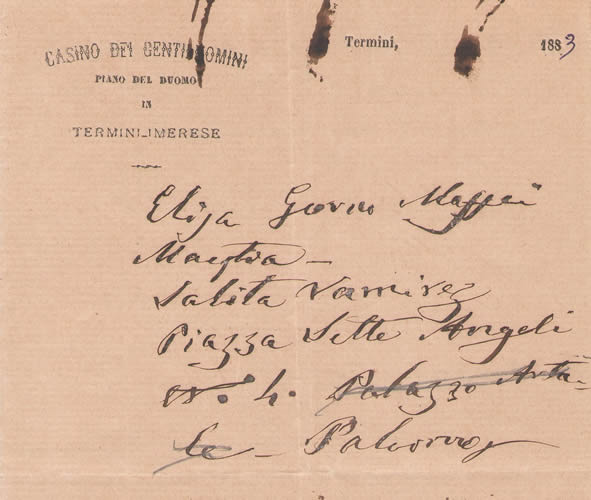 CASINO DEI GENTILUOMINI
PIANO DEL DUOMO
IN
TERMINI-IMERESE
Termini, 1883
Eliza Maffei
Salita Ramirez
Piazza Sette Angeli
N.º 4. Palazzo Arta-
le - Palermo